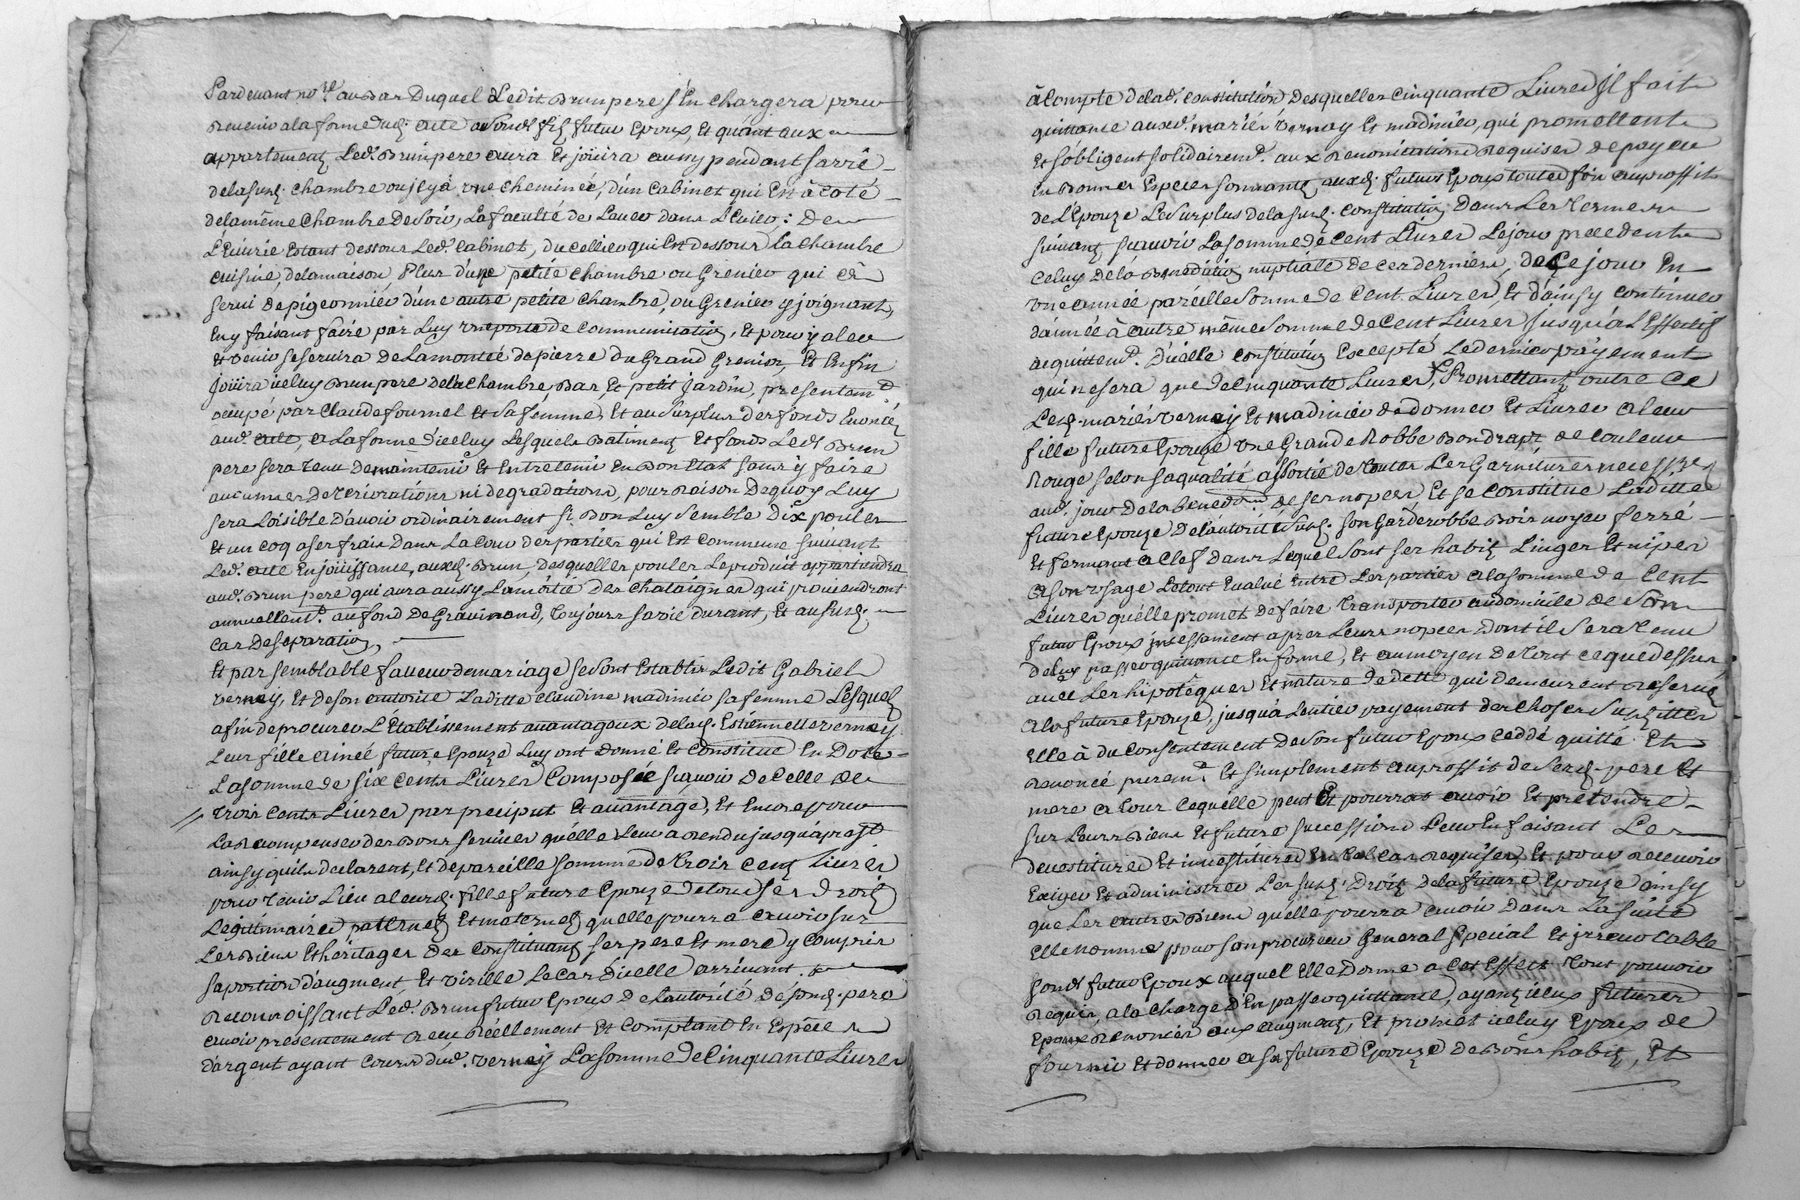 Pardevant no.re au bas Duquel Ledit Brun pere s'En chargera pour
Revenir a la forme dud. acte aud. fils futur Epoux, Et quant aux
appartements Led. Brun pere aura Et joüira aussy pendant sa vie
de la susd. chambre ou il y à une cheminée, d'un Cabinet qui Est à côté
de la même chambre De Soir, La faculté de dans L'Ecurie: De
L'Ecurie Estant dessous Led. Cabinet, du cellier qui Est dessous La chambre
cuisine, de la maison, Plus d'une petite chambre ou Grenier qui à
servi de pigeonnier d'une autre petite chambre, ou Grenier y joignant,
En y faisant faire par Luy une porte de communication, Et pour y aler
Et venir se servira de La montée de pierre du Grand Grenier, Et Enfin
Joüira icelluy Brun pere de la Chambre, Bas, Et petit jardin, presentem.t
occupé par Claude fournel Et Sa femme, Et au Surplus des fonds Enoncés
aud. acte, a La forme d'iceluy Lesquels Batiments Et fonds Led. Brun
pere sera tenu de maintenir Et Entretenir En Bon Etat sans y faire
aucunnes Deteriorations ni degradations, pour Raison Dequoy Luy
Sera Loisible D'avoir ordinairement si Bon Luy semble Dix poules
Et un Coq a ses frais Dans La Cour des parties qui Est commune suivant
Led. acte En joüissance, auxd. Brun, Desquelles poules Le produit appartiendra
aud. Brun pere qui aura aussy La moitié des Chataignes qui proviendront
annuellem.t au fond de Gravinand, toujours sa vie durant, Et au susd.
Cas De Separation,
Et par semblable faveur de mariage se sont Etablis Ledit Gabriel
Vernay, Et de son autorité Laditte Claudine madinier sa femme Lesquels
afin de procurer L'Etablissement avantageux de lad. Estiennette Vernay
Leur fille ainée future Epouze Luy ont donné Et constitué En Dote
La somme de six cents Livres Composée sçavoir De Celle de
trois Cents Livres par preciput Et avantage, Et Encore pour
La Recompenser des Bons services qu'elle Leur a Rendu jusqu'à p.nt
ainsy qu'ils declarent, Et de pareille somme de trois cents Livres
pour tenir Lieu a leurd. fille future Epouze de tous ses droits
Legitimaires paternels Et maternels qu'elle pourra avoir sur
Les Biens Et heritages des Constituants ses pere Et mere y compris
sa portion d'augment, Et virille Le Cas d'icelle arrivant.
Reconnoissant Led. Brun futur Epoux de L'autorité de sond. pere
avoir presentement Reçu Réellement Et Comptant En Especes
d'argent ayant Cours dud. Vernay La somme de Cinquante Livres
à Compte de lad. Constitution Desquelles Cinquante Livres Il fait
quittance auxd. mariés Vernay Et madinier, qui promettent
Et s'obligent solidairem.t aux Renonciations Requises de payer
En Bonnes Especes sonnantes auxd. futurs Epoux toutes fois au proffit
de L'Epouze Le Surplus de la susd. Constitution Dans Les termes
suivants sçavoir La somme de Cent Livres Le jour precedent
Celuy de la Benediction nuptiale de ces derniers, de Ce jour En
une année pareille Somme de Cent Livres, Et d'ainsy continuer
d'année à autre même Somme de Cent Livres jusqu'a L'Effectif
acquittem.t d'icelle constitution Excepté Le dernier payement
qui ne sera que de Cinquante Livres, Promettant outre Ce
Lesd. mariés Vernay Et madinier de donner Et Livrer a leur
fille future Epouze une Grande Robbe Bon drapt de Couleur
Rouge selon sa qualité assortie de toutes Les Garnitures necess.res
aud. jour de la bened.on de ses nopces, Et se Constitue Laditte
future Epouze De L'autorité Susd. son Garderobbe Bois noyer ferré
Et fermant a Clef dans Lequel Sont ses habits Linges Et nipes
a son Usage Le tout Evalué Entre Les parties a la somme de Cent
Livres qu'elle promet de faire transporter au domicile de Son
futur Epoux incessament apres Leurs nopces Dont il Sera tenu
de Lui passer quittance En forme, Et au moyen de tout ce que dessus,
avec Les hipotêques Et nature de dette qui demeurent Reservés
a la future Epouze, jusqu'à L'entier payement des choses susd.
Elle à du Consentement de son futur Epoux Ceddé quitté Et
Renoncé purem.t Et simplement au proffit de sesd. pere Et
mere a tout ce qu'elle peut Et pourrat avoir Et prétendre
sur Leurs Biens Et future succession Leur En faisant Les
devestitures Et investitures En tel cas Requises, Et pour Recevoir
Exiger Et administrer Les susd. Droits de la future Epouze ainsy
que Les autres Biens qu'elle pourra avoir dans La suite
Elle nomme pour son procureur General Special Et irrevocable
sond. futur Epoux auquel Elle Donne a Cet Effet tout pouvoir
Requis, a la Charge d'En passer quittance, ayant iceux futurs
Epoux Renoncés aux augments, Et promet iceluy Epoux de
fournir Et donner a sa future Epouze de Bons habits, Et